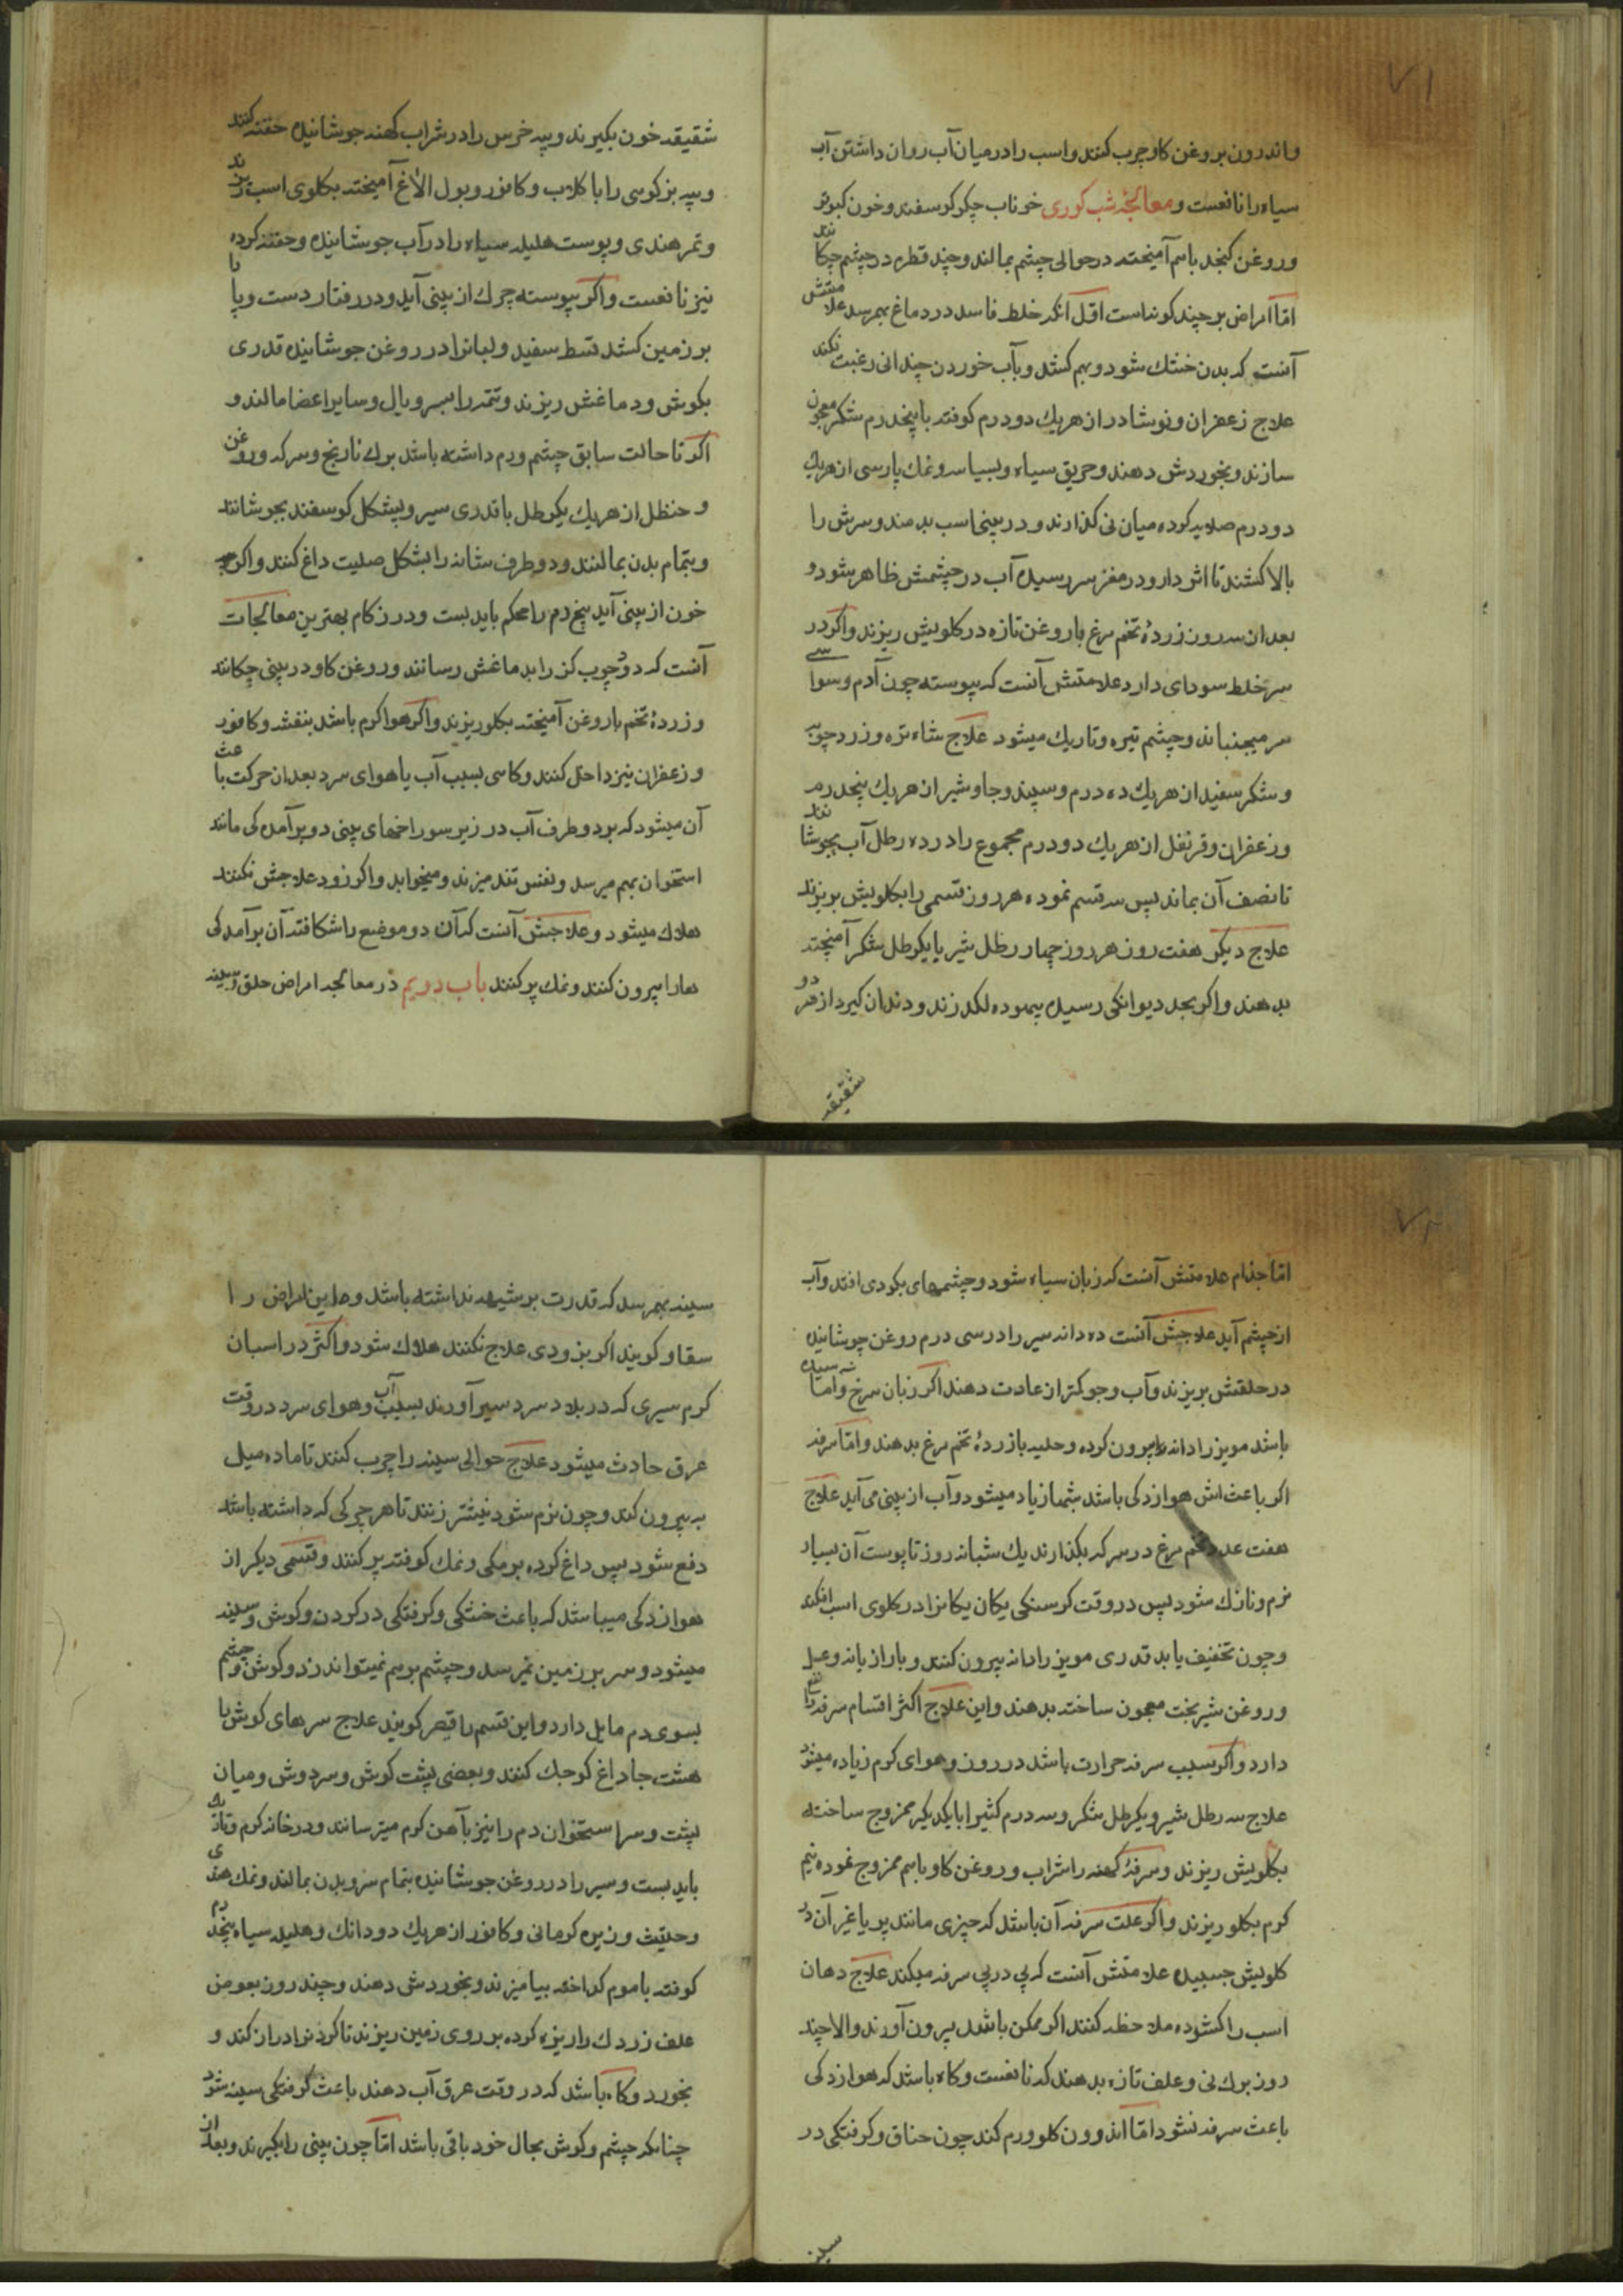 ٧١
واندرون بروغن کاو چرب کنند واسب را در میان آب روان داشتن آب
سیاه را نافعست ومعالجه شب کوری خوناب جکر کوسفند وخون کبوتر
وروغن کنجد باهم آمیخته در حوالی چشم بمالند وچند قطره در چشم چکانند
امّا امراض بر چند کونه است اوّل آنکه خلط فاسد در دماغ بهم رسد علامتش
آنست که بدن خشك شود وبهم کشد وبآب خوردن چندانی رغبت نکند
علاج زعفران ونوشادر از هریك دو درم کوفته با پنجدرم شکر معجون
سازند وبخوردش دهند وخربق سیاه وبسباسه ونمك پارسی از هریك
دو درم صلایه کرده میان نی کذارند ودر بینی اسب بدمند وسرش را
بالا کشند تا اثر دارو در مغز سر رسیده آب در چشمش ظاهر شود و
بعد از سه روز زردهٔ تخم مرغ با روغن تازه در کلویش ریزند واکر در
سر خلط سودای دارد علامتش آنست که پیوسته چون آدم وسواسی
سر میجنباند وچشم تیره وتاریك میشود علاج شاه تره وزرد چوبه
وشکر سفید از هریك ده درم وسپند وجاوشیر از هریك پنجدرم
وزعفران وقرنفل از هریك دو درم مجموع را در ده رطل آب بجوشانند
تا نصف آن بماند پس سه قسم نموده هر روز قسمی را بکلویش بریزند
علاج دیکر هفت روز هر روز چهار رطل شیر با یکرطل شکر آمیخته
بدهند واکر بحد دیوانکی رسیده بیهوده لکد زند ودندان کیرد از هر دو
شقیقه
شقیقه خون بکیرند وپیه خرس را در شراب کهنه جوشانیده حقنه کنند
وپیه بز کوهی را با کلاب وکافور وبول الاغ آمیخته بکلوی اسب ریزند
وتمر هندی وپوست هلیله سیاه را در آب جوشانیده وحقنه کرده
نیز نافعست واکر پیوسته چرك از بینی آید ودر رفتار دست وپا را
بر زمین کشد قسط سفید ولبانرا در روغن جوشانیده قدری
بکوش ودماغش ریزند وتتمه را بسر ویال وسایر اعضا مالند و
اکر تا حالت سابق چشم ورم داشته باشد برك نارنج وسرکه وروغن
وحنظل از هریك یکرطل با قدری سیر وپشکل کوسفند بجوشانند
وبتمام بدن بمالند ودو طرف شانه را بشکل صلیب داغ کنند واکر
خون از بینی آید بیخ دم را محکم باید بست ودر زکام بهترین معالجات
آنست که دود چوب کز را بدماغش رسانند وروغن کاو در بینی چکانند
وزردهٔ تخم با روغن آمیخته بکلو ریزند واکر هوا کرم باشد بنفشه وکافور
وزعفران نیز داخل کنند وکاهی بسبب آب یا هوای سرد بعد از حرکت باعث
آن میشود که بر دو طرف آب در زیر سوراخهای بینی دو برآمدکی مانند
استخوان بهم میرسد ونفس تند میزند ومیخوابد واکر زود علاجش نکنند
هلاك میشود وعلاجش آنست که آن دو موضع را شکافته آن برآمدکی
هارا بیرون کنند ونمك پر کنند باب دویم در معالجه امراض حلق وسینه
٧٢
امّا جذام علامتش آنست که زبان سیاه شود وچشمهای بکودی افتد وآب
از چشم آید علاجش آنست ده دانه سیر را در سی درم روغن جوشانیده
در حلقش بریزند وآب وجو کمتر از عادت دهند اکر زبان سرخ وآماسیده
باشد مویز را دانه بیرون کرده وحلبه با زردهٔ تخم مرغ بدهند وامّا سرفه
اکر باعث اش هوازدکی باشد شبها زیاد میشود وآب از بینی می آید علاج
هفت عدد تخم مرغ در سرکه بکذارند یك شبانه روز تا پوست آن بسیار
نرم ونازك شود پس در وقت کرسنکی یکان یکانرا در کلوی اسب افکنند
وچون تخفیف یابد قدری مویز را دانه بیرون کنند وبا رازیانه وعسل
وروغن شیربخت معجون ساخته بدهند واین علاج اکثر اقسام سرفه را نفع
دارد واکر سبب سرفه حرارت باشد در روز وهوای کرم زیاده میشود
علاج سه رطل شیر ویکرطل شکر وسه درم کثیرا با یکدیکر ممزوج ساخته
بکلویش ریزند وسرفهٔ کهنه را شراب وروغن کاو باهم ممزوج نموده نیم
کرم بکلو ریزند واکر علت سرفه آن باشد که چیزی مانند پر یا غیر آن در
کلویش چسبیده علامتش آنست که پی در پی سرفه میکند علاج دهان
اسب را کشوده ملاحظه کنند اکر ممکن باشد بیرون آورند والا چند
روز برك نی وعلف تازه بدهند که نافعست وکاه باشد که هوازدکی
باعث سرفه نشود امّا اندرون کلو ورم کند چون خناق وکرفتکی در
سینه
سینه بهم رسد که قدرت بر شیهه نداشته باشد واین امراض را
سقاو کویند اکر بزودی علاج نکنند هلاك شود واکثر در اسبان
کرم سیری که در بلاد سرد سیر آورند بسبب آب وهوای سرد در وقت
عرق حادث میشود علاج حوالی سینه را چرب کنند تا ماده میل
به بیرون کند وچون نرم شود نیشتر زنند تا هر چرکی که داشته باشد
دفع شود پس داغ کرده برمکی ونمك کوفته پر کنند وقسمی دیکر از
هوازدکی میباشد که باعث خشکی وکرفتکی در کردن وکوش وسینه
میشود وسر بر زمین نمیرسد وچشم برهم نمیتواند زد وکوش وچشم
بسوی دم مایل دارد واین قسم را قصر کویند علاج سرهای کوش با
هشت جا داغ کوچك کنند وبعضی پشت کوش وسر دوش ومیان
پشت وسر استخوان دم را نیز بآهن کرم میرسانند ودر خانه کرم وتاریك
باید بست وسیر را در روغن جوشانیده بتمام سر وبدن بمالند ونمك هندی
وحلتیت وزیره کرمانی وکافور از هریك دو دانك وهلیله سیاه پنجدرم
کوفته با موم کداخته بیامیزند وبخوردش دهند وچند روز بعوض
علف زردك را ریزه کرده بر روی زمین ریزند تا کردنرا دراز کند و
بخورد وکاه باشد که در وقت عرق آب دهند باعث کرفتکی سینه شود
چنانکه چشم وکوش بحال خود باقی باشد امّا چون بینی را بکیرند وبعد از